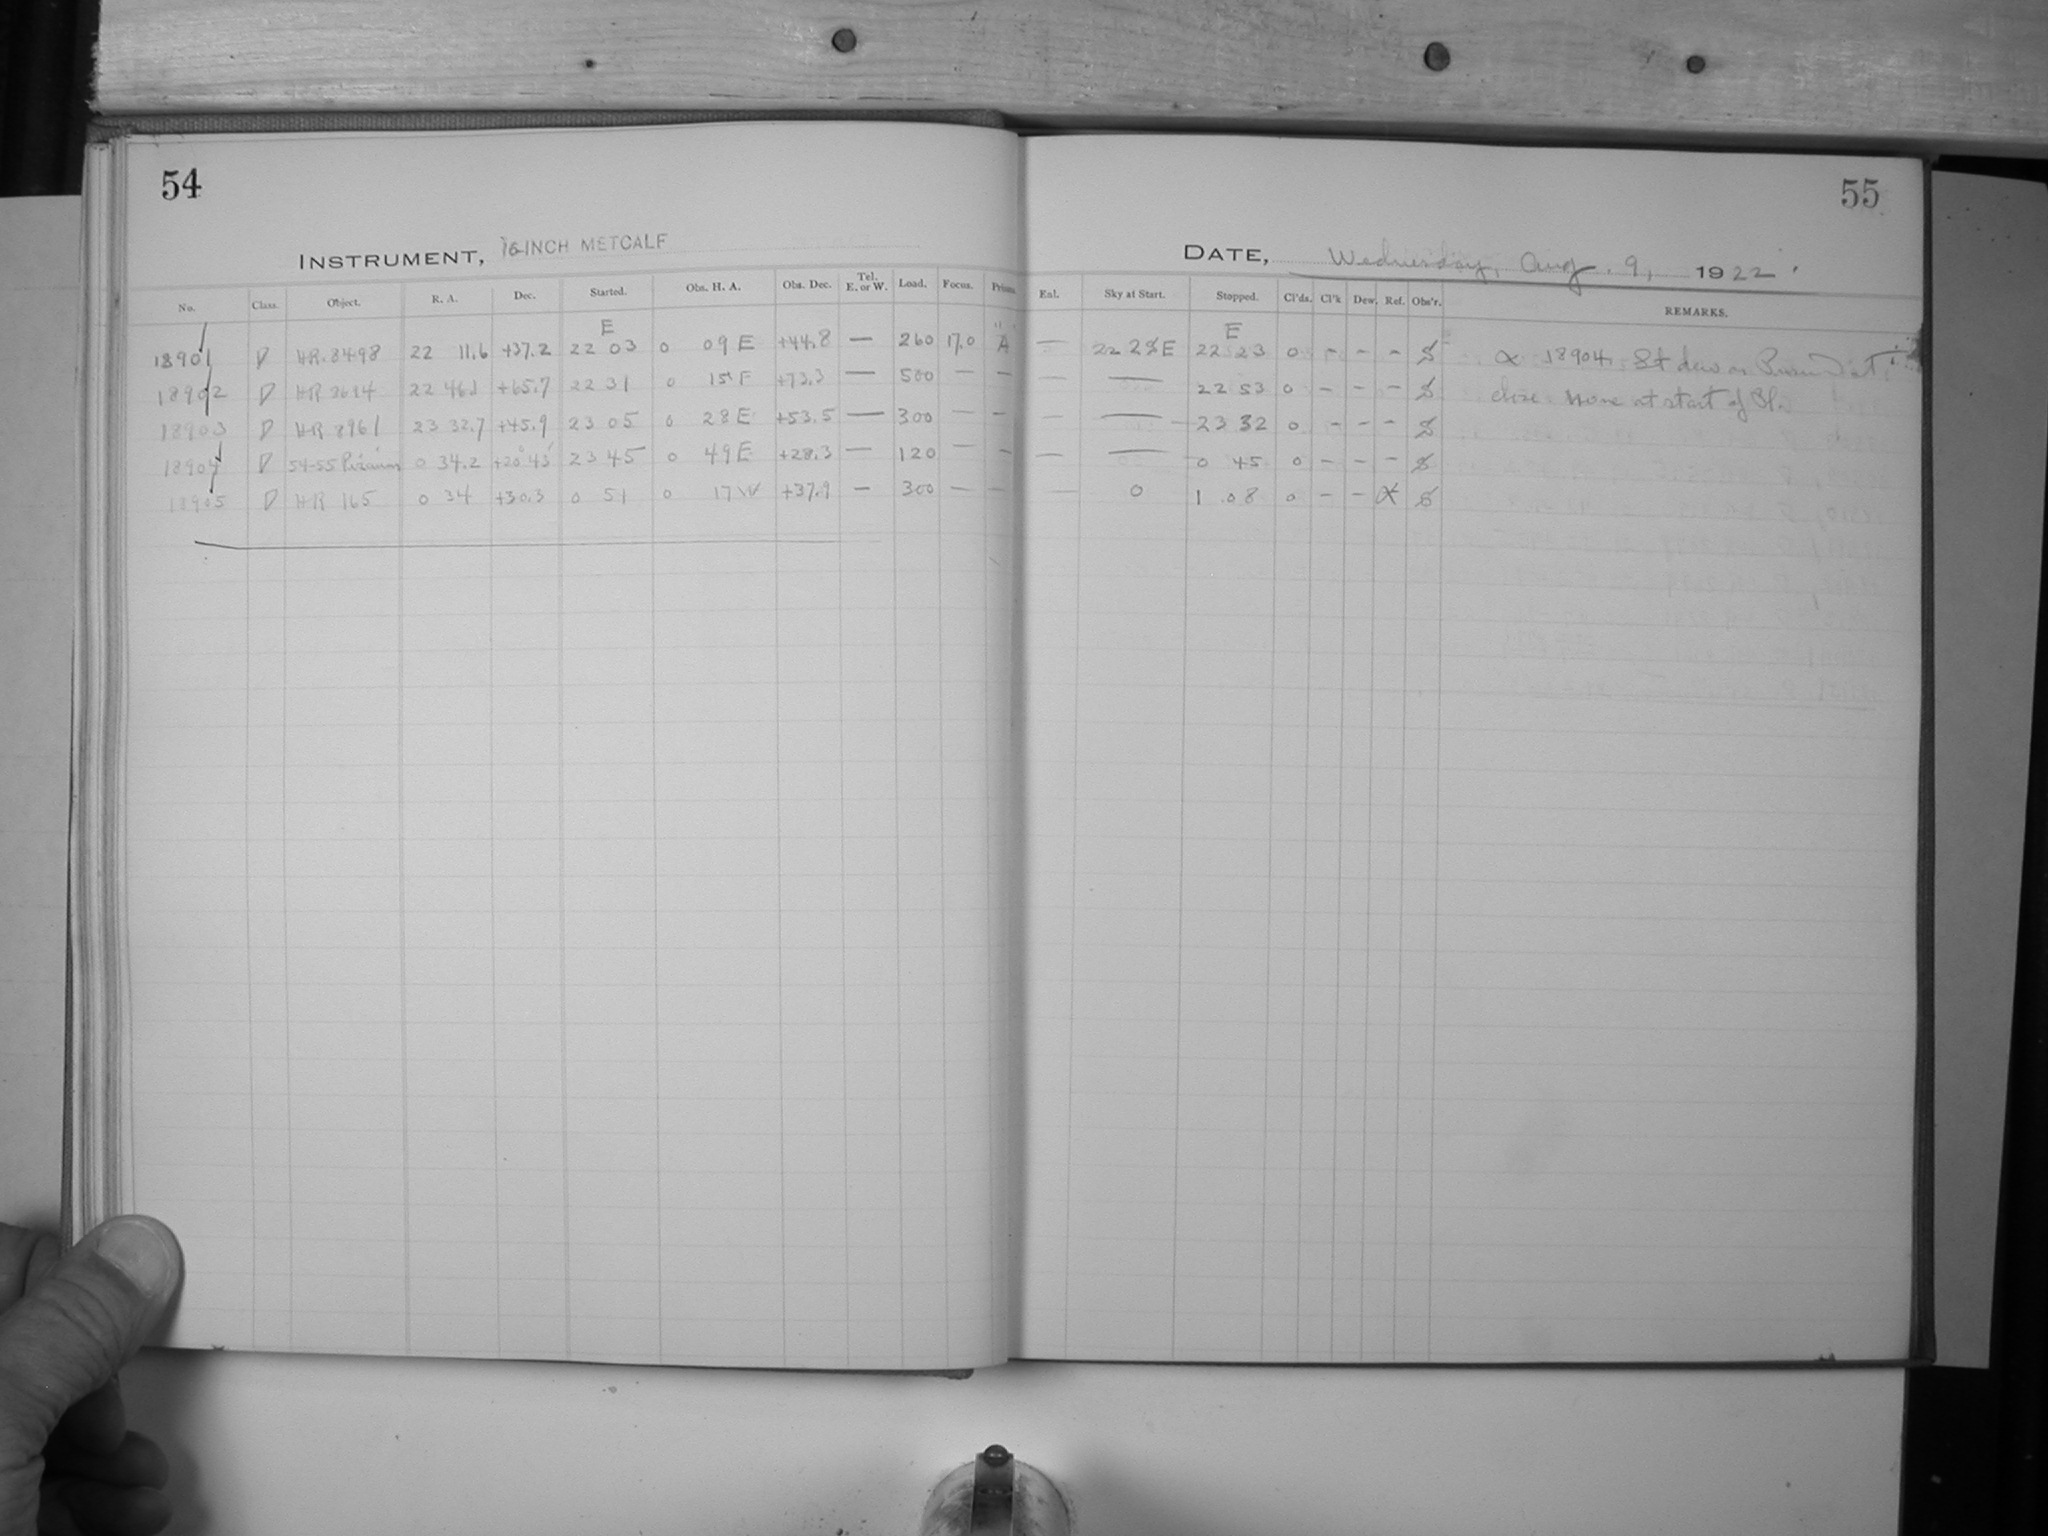 54
55
INSTRUMENT, 16-INCH METCALF
DATE, Wednesday, Aug. 9, 1922.
No. Class. Object. R. A. Dec. Started. Obs. H. A. Obs. Dec. Tel. E. or W. Load. Focus. Prism. Enl. Sky at Start. Stopped. Cl'ds. Cl'k Dew. Ref. Obs'r. REMARKS.
E E
18901 D HR. 8498 22 11.6 +37.2 22 03 0 09 E +44.8 — 260 17.0 "A" — 22 28 E 22 23 0 - - - S α 18904. Slt dew on Prism at
18902 D HR 8694 22 46.1 +65.7 22 31 0 15 E +73.3 — 500 — — — — 22 53 0 - - - S close. None at start of Pl.
18903 D HR 8961 23 32.7 +45.9 23 05 0 28 E +53.5 — 300 — - — — 23 32 0 - - - S
18904 D 54-55 Piscium 0 34.2 +20°43' 23 45 0 49 E +28.3 — 120 — - — — 0 45 0 - - - S
18905 D HR 165 0 34 +30.3 0 51 0 17 W +37.9 — 300 — — — 0 1 08 0 - - α S